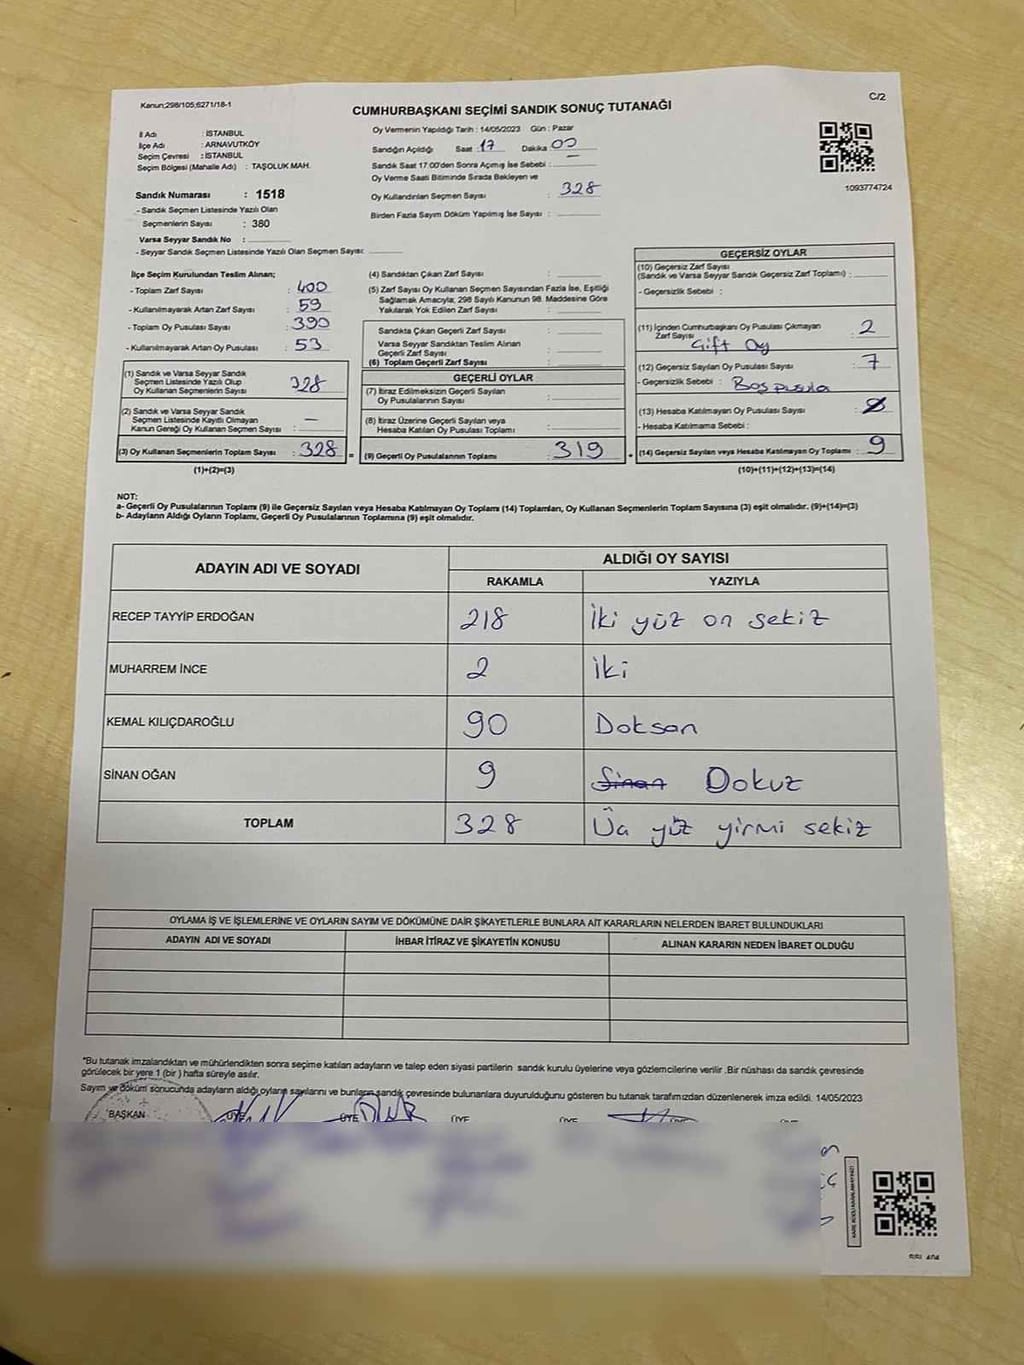 Kanun;298/105;6271/18-1
C/2
CUMHURBAŞKANI SEÇİMİ SANDIK SONUÇ TUTANAĞI
İl Adı : İSTANBUL
İlçe Adı : ARNAVUTKÖY
Seçim Çevresi : İSTANBUL
Seçim Bölgesi (Mahalle Adı) : TAŞOLUK MAH.
Sandık Numarası : 1518
- Sandık Seçmen Listesinde Yazılı Olan
Seçmenlerin Sayısı : 380
Varsa Seyyar Sandık No :
- Seyyar Sandık Seçmen Listesinde Yazılı Olan Seçmen Sayısı:
Oy Vermenin Yapıldığı Tarih : 14/05/2023 Gün : Pazar
Sandığın Açıldığı Saat : 17 Dakika 00
Sandık Saat 17:00'den Sonra Açımış İse Sebebi : —
Oy Verme Saati Bitiminde Sırada Bekleyen ve
Oy Kullandırılan Seçmen Sayısı : 328
Birden Fazla Sayım Döküm Yapılmış İse Sayısı :
1093774724
İlçe Seçim Kurulundan Teslim Alınan;
- Toplam Zarf Sayısı : 400
- Kullanılmayarak Artan Zarf Sayısı : 59
- Toplam Oy Pusulası Sayısı : 390
- Kullanılmayarak Artan Oy Pusulası : 53
(1) Sandık ve Varsa Seyyar Sandık
Seçmen Listesinde Yazılı Olup
Oy Kullanan Seçmenlerin Sayısı : 328
(2) Sandık ve Varsa Seyyar Sandık
Seçmen Listesinde Kayıtlı Olmayan
Kanun Gereği Oy Kullanan Seçmen Sayısı : —
(3) Oy Kullanan Seçmenlerin Toplam Sayısı : 328
(1)+(2)=(3)
=
(4) Sandıktan Çıkan Zarf Sayısı :
(5) Zarf Sayısı Oy Kullanan Seçmen Sayısından Fazla İse, Eşitliği
Sağlamak Amacıyla; 298 Sayılı Kanunun 98. Maddesine Göre
Yakılarak Yok Edilen Zarf Sayısı :
Sandıkta Çıkan Geçerli Zarf Sayısı :
Varsa Seyyar Sandıktan Teslim Alınan
Geçerli Zarf Sayısı :
(6) Toplam Geçerli Zarf Sayısı :
GEÇERLİ OYLAR
(7) İtiraz Edilmeksizin Geçerli Sayılan
Oy Pusulalarının Sayısı :
(8) İtiraz Üzerine Geçerli Sayılan veya
Hesaba Katılan Oy Pusulası Toplamı :
(9) Geçerli Oy Pusulalarının Toplamı : 319
+
GEÇERSİZ OYLAR
(10) Geçersiz Zarf Sayısı
(Sandık ve Varsa Seyyar Sandık Geçersiz Zarf Toplamı) :
- Geçersizlik Sebebi :
(11) İçinden Cumhurbaşkanı Oy Pusulası Çıkmayan
Zarf Sayısı : 2
Çift Oy
(12) Geçersiz Sayılan Oy Pusulası Sayısı : 7
- Geçersizlik Sebebi : Boş pusula
(13) Hesaba Katılmayan Oy Pusulası Sayısı :
- Hesaba Katılmama Sebebi :
(14) Geçersiz Sayılan veya Hesaba Katılmayan Oy Toplamı : 9
(10)+(11)+(12)+(13)=(14)
NOT:
a- Geçerli Oy Pusulalarının Toplamı (9) ile Geçersiz Sayılan veya Hesaba Katılmayan Oy Toplamı (14) Toplamları, Oy Kullanan Seçmenlerin Toplam Sayısına (3) eşit olmalıdır. (9)+(14)=(3)
b- Adayların Aldığı Oyların Toplamı, Geçerli Oy Pusulalarının Toplamına (9) eşit olmalıdır.
ADAYIN ADI VE SOYADI
ALDIĞI OY SAYISI
RAKAMLA YAZIYLA
RECEP TAYYİP ERDOĞAN 218 İki yüz on sekiz
MUHARREM İNCE 2 İki
KEMAL KILIÇDAROĞLU 90 Doksan
SİNAN OĞAN 9 Sinan Dokuz
TOPLAM 328 Üç yüz yirmi sekiz
OYLAMA İŞ VE İŞLEMLERİNE VE OYLARIN SAYIM VE DÖKÜMÜNE DAİR ŞİKAYETLERLE BUNLARA AİT KARARLARIN NELERDEN İBARET BULUNDUKLARI
ADAYIN ADI VE SOYADI İHBAR İTİRAZ VE ŞİKAYETİN KONUSU ALINAN KARARIN NEDEN İBARET OLDUĞU
*Bu tutanak imzalandıktan ve mühürlendikten sonra seçime katılan adayların ve talep eden siyasi partilerin sandık kurulu üyelerine veya gözlemcilerine verilir .Bir nüshası da sandık çevresinde
görülecek bir yere 1 (bir ) hafta süreyle asılır.
Sayım ve döküm sonucunda adayların aldığı oyların sayılarını ve bunların sandık çevresinde bulunanlara duyurulduğunu gösteren bu tutanak tarafımızdan düzenlenerek imza edildi. 14/05/2023
BAŞKAN ÜYE ÜYE ÜYE ÜYE ÜYE